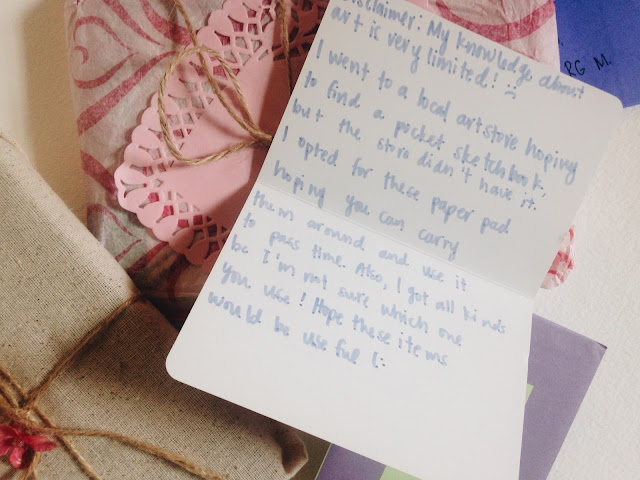 Disclaimer: My knowledge about
art is very limited! :(
I went to a local artstore hoping
to find a pocket sketchbook
but the store didn't have it.
I opted for these paper pad
hoping you can carry
them around and use it
to pass time. Also, I got all kinds
bc I'm not sure which one
you use! Hope these items
would be useful (:
RG M.